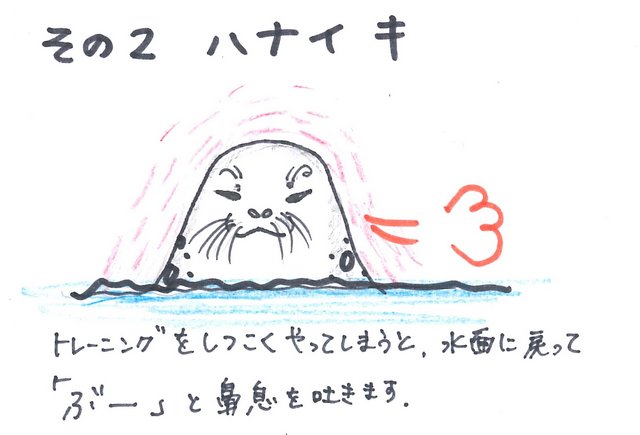 その2 ハナイキ
トレーニングをしつこくやってしまうと、水面に戻って
「ぶー」と鼻息を吐きます.